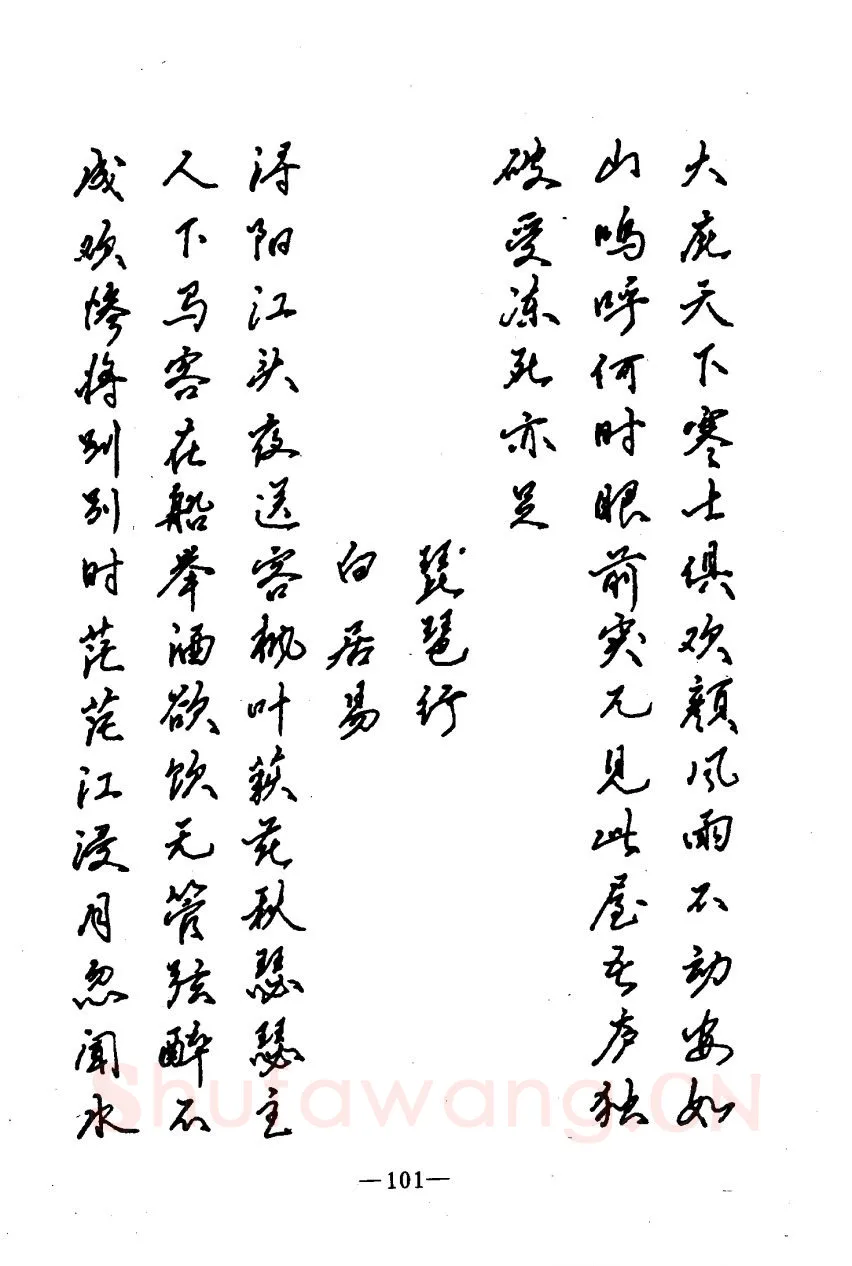 大庇天下寒士俱欢颜风雨不动安如
山呜呼何时眼前突兀见此屋吾庐独
破受冻死亦足
琵琶行
白居易
浔阳江头夜送客枫叶荻花秋瑟瑟主
人下马客在船举酒欲饮无管弦醉不
成欢惨将别别时茫茫江浸月忽闻水
Shufawang.CN
—101—